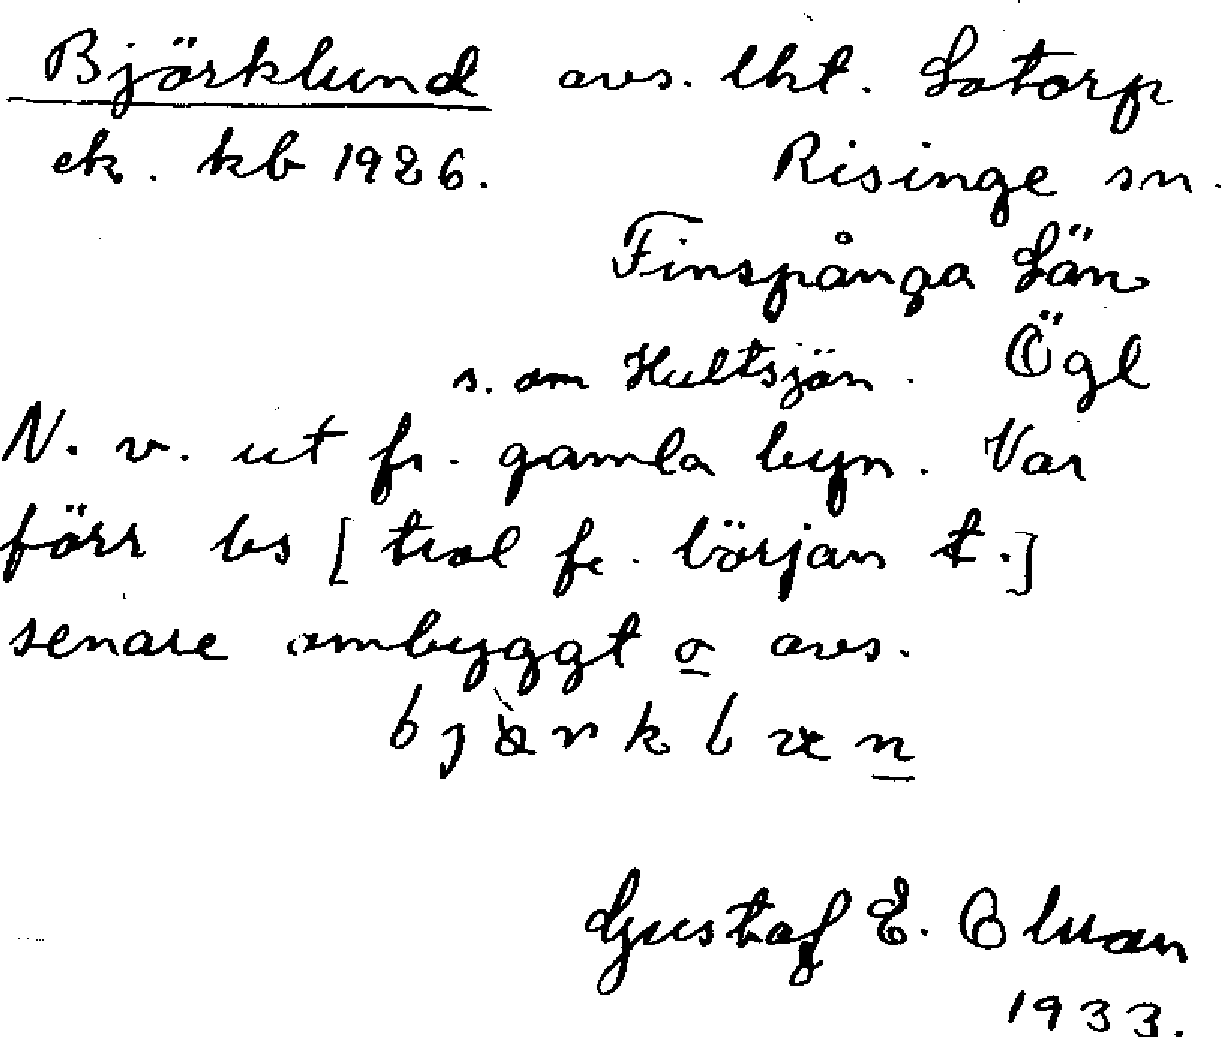 Björklund avs. lht. Latorp
ek. kb 1926. Risinge sn.
Finspånga Län
s. om Hultsjön. Ögl
N. v. ut fr. gamla byn. Var
förr bs [trol fr. början t.]
senare ombyggt o avs.
Gustaf E.
1933.